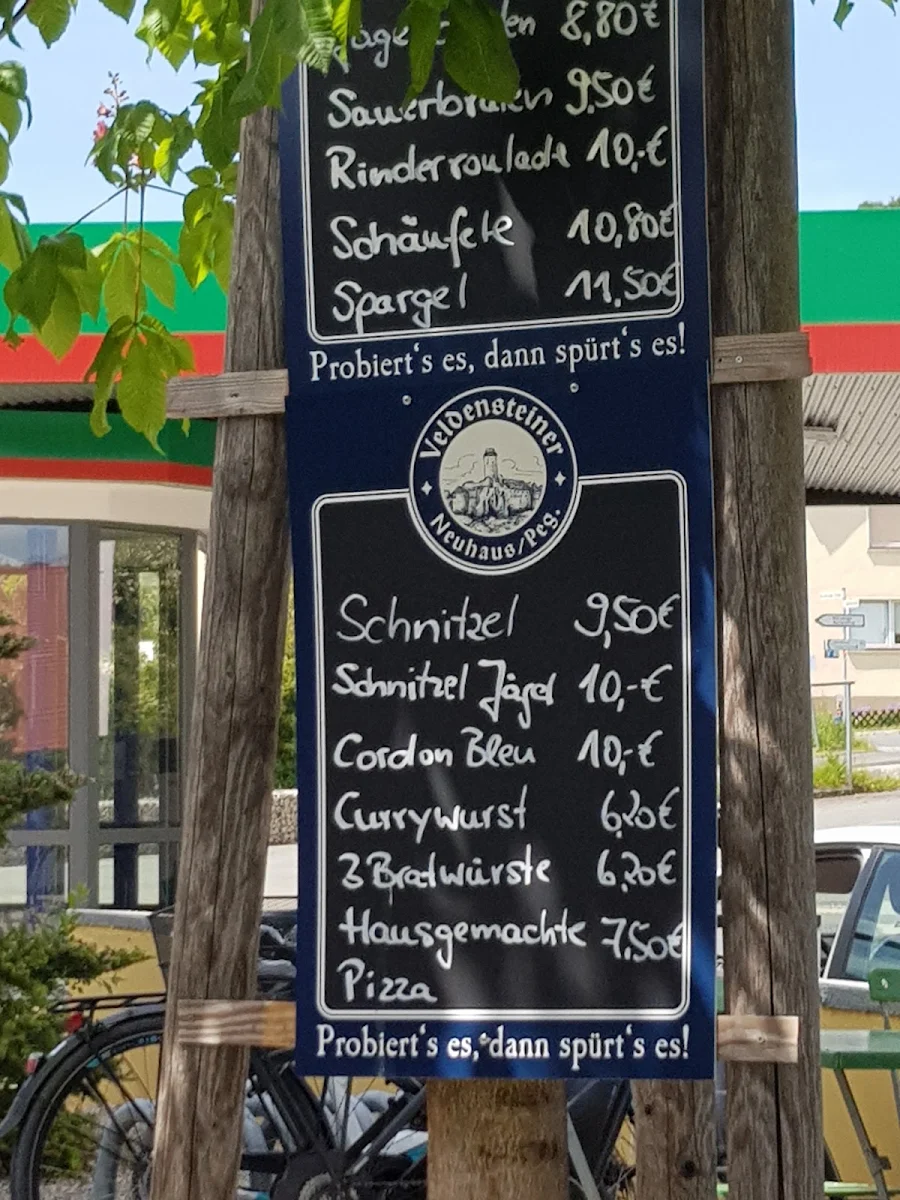 8,80€
Sauerbraten 9,50€
Rinderroulade 10,-€
Schäufele 10,80€
Spargel 11,50€
Probiert's es, dann spürt's es!
Veldensteiner
Neuhaus/Peg.
Schnitzel 9,50€
Schnitzel Jäger 10,-€
Cordon Bleu 10,-€
Currywurst 6,20€
3 Bratwürste 6,20€
Hausgemachte 7,50€
Pizza
Probiert's es, dann spürt's es!